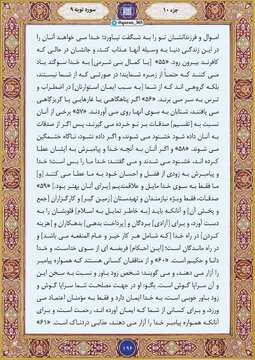 جزء ۱۰
@quran_365
سوره توبه ۹
اموال و فرزندانشان تو را به شگفت نیاورد؛ خدا می خواهد آنان را
در این زندگی دنیا به وسیله آنها عذاب کند، و جانشان در حالی که
کافرند بیرون رود. «۵۵» به خدا سوگند یاد
می کنند که حتماً از زمره شمایند؛ در صورتی که از شما نیستند،
بلکه گروهی اند که از شما در اضطراب و
ترس به سر می برند. «۵۶» اگر پناهگاهی یا غارهایی یا گریزگاهی
می یافتند، شتابان به سوی آنها روی می آوردند. «۵۷» برخی از آنان
نسبت به صدقات بر تو خرده می گیرند، پس اگر از صدقات
به آنان داده شود خشنود می شوند، و اگر داده نشود، ناگاه خشمگین
می شوند. «۵۸» و اگر آنان به آنچه خدا و پیامبرش به ایشان عطا
کرده اند، خشنود می شدند و می گفتند: خدا ما را بس است؛ خدا
و پیامبرش به زودی از فضل و احسان خود به ما عطا می کنند
ما فقط به سوی خدا مایل و علاقمندیم «۵۹»
صدقات، فقط ویژه نیازمندان و تهیدستان و کارگزاران
و آنانکه باید قلوبشان را به
دست آورد، و برای بردگان و بدهکاران و
در راه خدا و
در راه ماندگان است؛ از سوی خداست، و خدا
دانا و حکیم است. «۶۰» و از منافقان کسانی هستند که همواره پیامبر
را آزار می دهند، و می گویند: شخص زود باور و نسبت به سخن این
و آن سراپا گوش است. بگو: او در جهت مصلحت شما سراپا گوش و
زود باور خوبی است، به خدا ایمان دارد و فقط به مؤمنان اعتماد می
ورزد، و برای کسانی از شما که ایمان آورده اند، رحمت است، و برای
آنانکه همواره پیامبر خدا را آزار می دهند، عذابی دردناک است. «۶۱»
۱۹۶